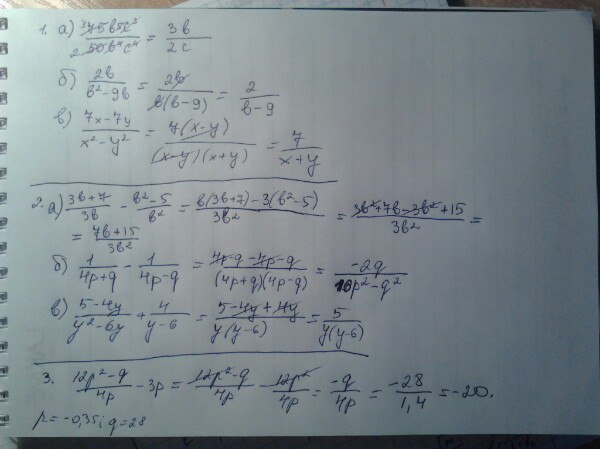 1. а) 75b⁵c³ / 50b⁴c⁴ = 3b / 2c
б) 2b / b² - 9b = 2b / b(b-9) = 2 / b-9
в) 7x-7y / x² - y² = 7(x-y) / (x-y)(x+y) = 7 / x+y
2. а) 3b+7 / 3b - b²-5 / b² = b(3b+7) - 3(b²-5) / 3b² = 3b²+7b-3b²+15 / 3b² =
= 7b+15 / 3b²
б) 1 / 4p+q - 1 / 4p-q = 4p-q-4p-q / (4p+q)(4p-q) = -2q / 16p²-q²
в) 5-4y / y²-6y + 4 / y-6 = 5-4y+4y / y(y-6) = 5 / y(y-6)
3. 12p²-q / 4p - 3p = 12p²-q / 4p - 12p² / 4p = -q / 4p = -28 / 1,4 = -20.
p = -0,35; q = 28